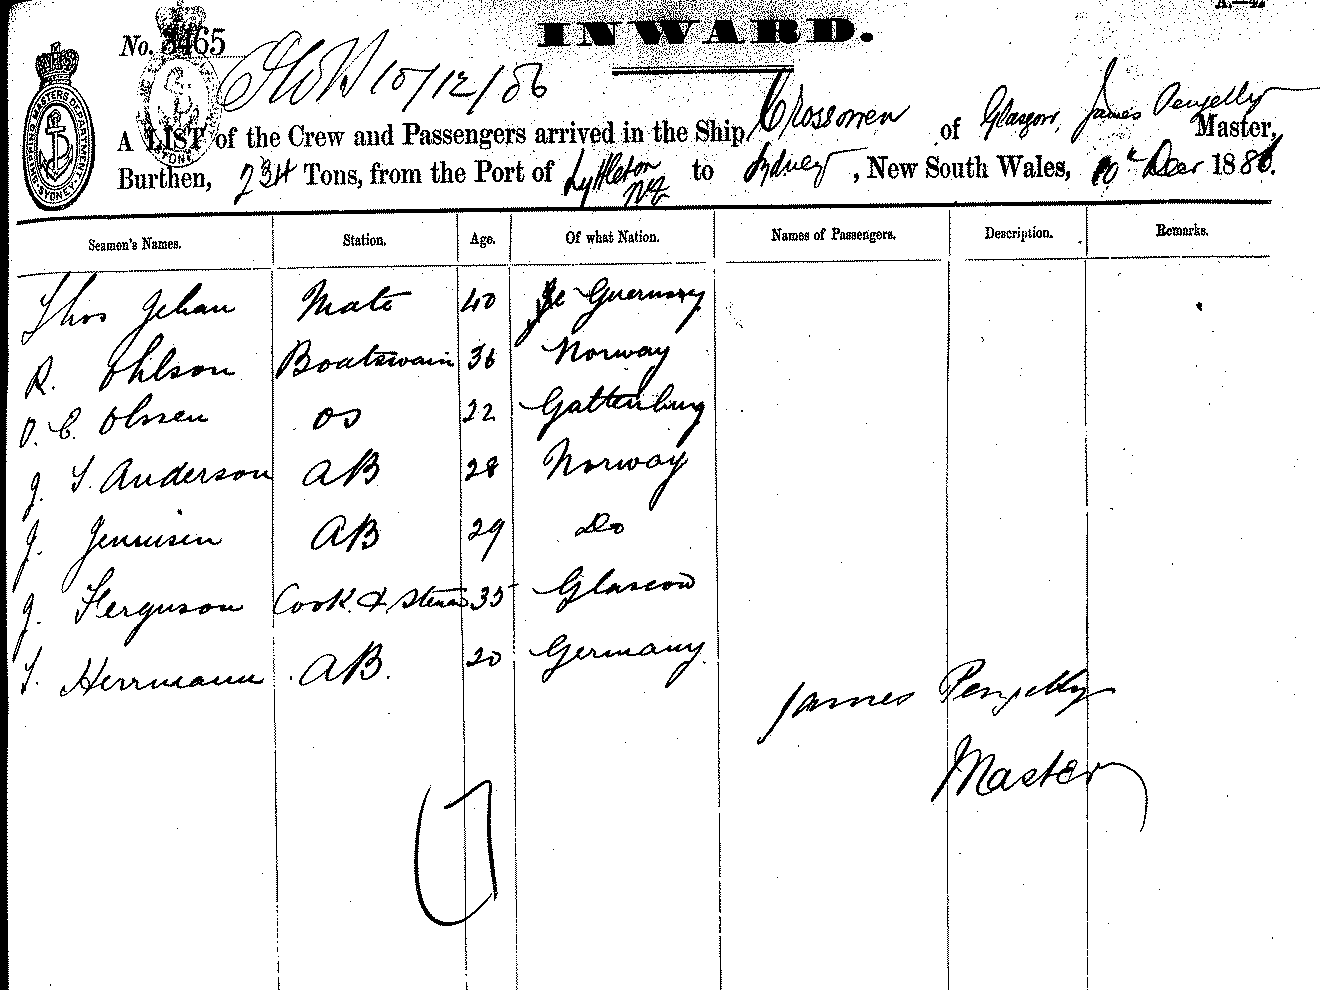 INWARD.
No. 3465
10/12/86
A LIST of the Crew and Passengers arrived in the Ship Crossowen of Glasgow, James Pengelly Master,
Burthen, 234 Tons, from the Port of Lyttleton NZ to Sydney, New South Wales, 10th Decr 1886.
Seamen's Names. Station. Age. Of what Nation. Names of Passengers. Description. Remarks.
Thos Jehan Mate 40 Guernsey
R. Ohlson Boatswain 36 Norway
O. C. Olssen OS 22 Gattenburg
J. S. Anderson AB 28 Norway
J. Jennisen AB 29 Do
J. Ferguson Cook & Steward 35 Glascow
S. Herrmann AB. 20 Germany
James Pengelly
Master